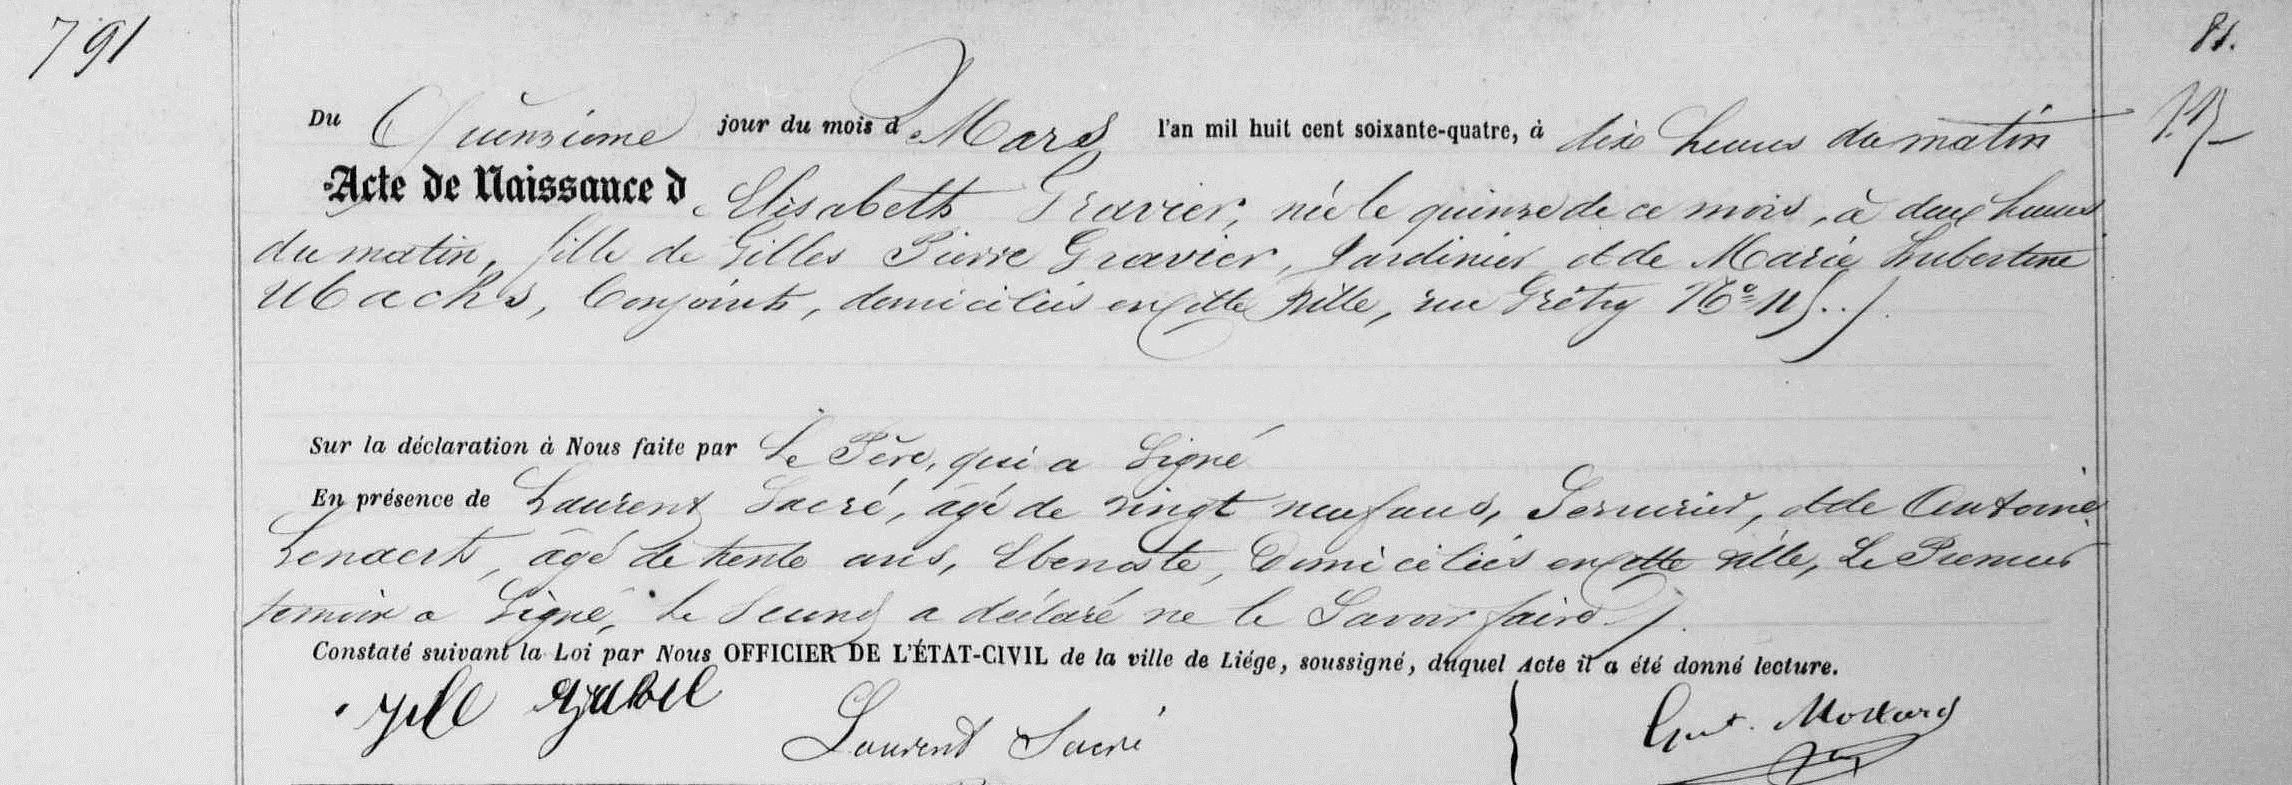 791
81.
Du Quinzième jour du mois d Mars l'an mil huit cent soixante-quatre, à dix heures du matin
Acte de Naissance d Elisabeth Gravier, née le quinze de ce mois, à deux heures
du matin, fille de Gilles Pierre Gravier, Jardinier et de Marie Hubertine
Ubachs, Conjoints, domiciliés en cette Ville, rue Grétry No
Sur la déclaration à Nous faite par Le Père, qui a Signé
En présence de Laurent Sacré, âgé de vingt neuf ans, Serrurier, et de Antoine
Lenaerts, âgé de trente ans, Ebeniste, Domiciliés en cette ville, Le Premier
temoin a Signé, le Second a déclaré ne le Savoir faire
Constaté suivant la Loi par Nous OFFICIER DE L'ÉTAT-CIVIL de la ville de Liége, soussigné, duquel Acte il a été donné lecture.
Laurent Sacré